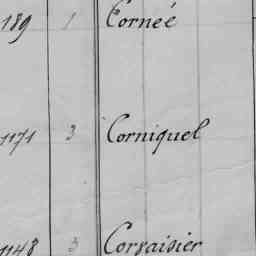 189 1 Corneé
1171 3 Corniquel
1148 3 Corsaisier